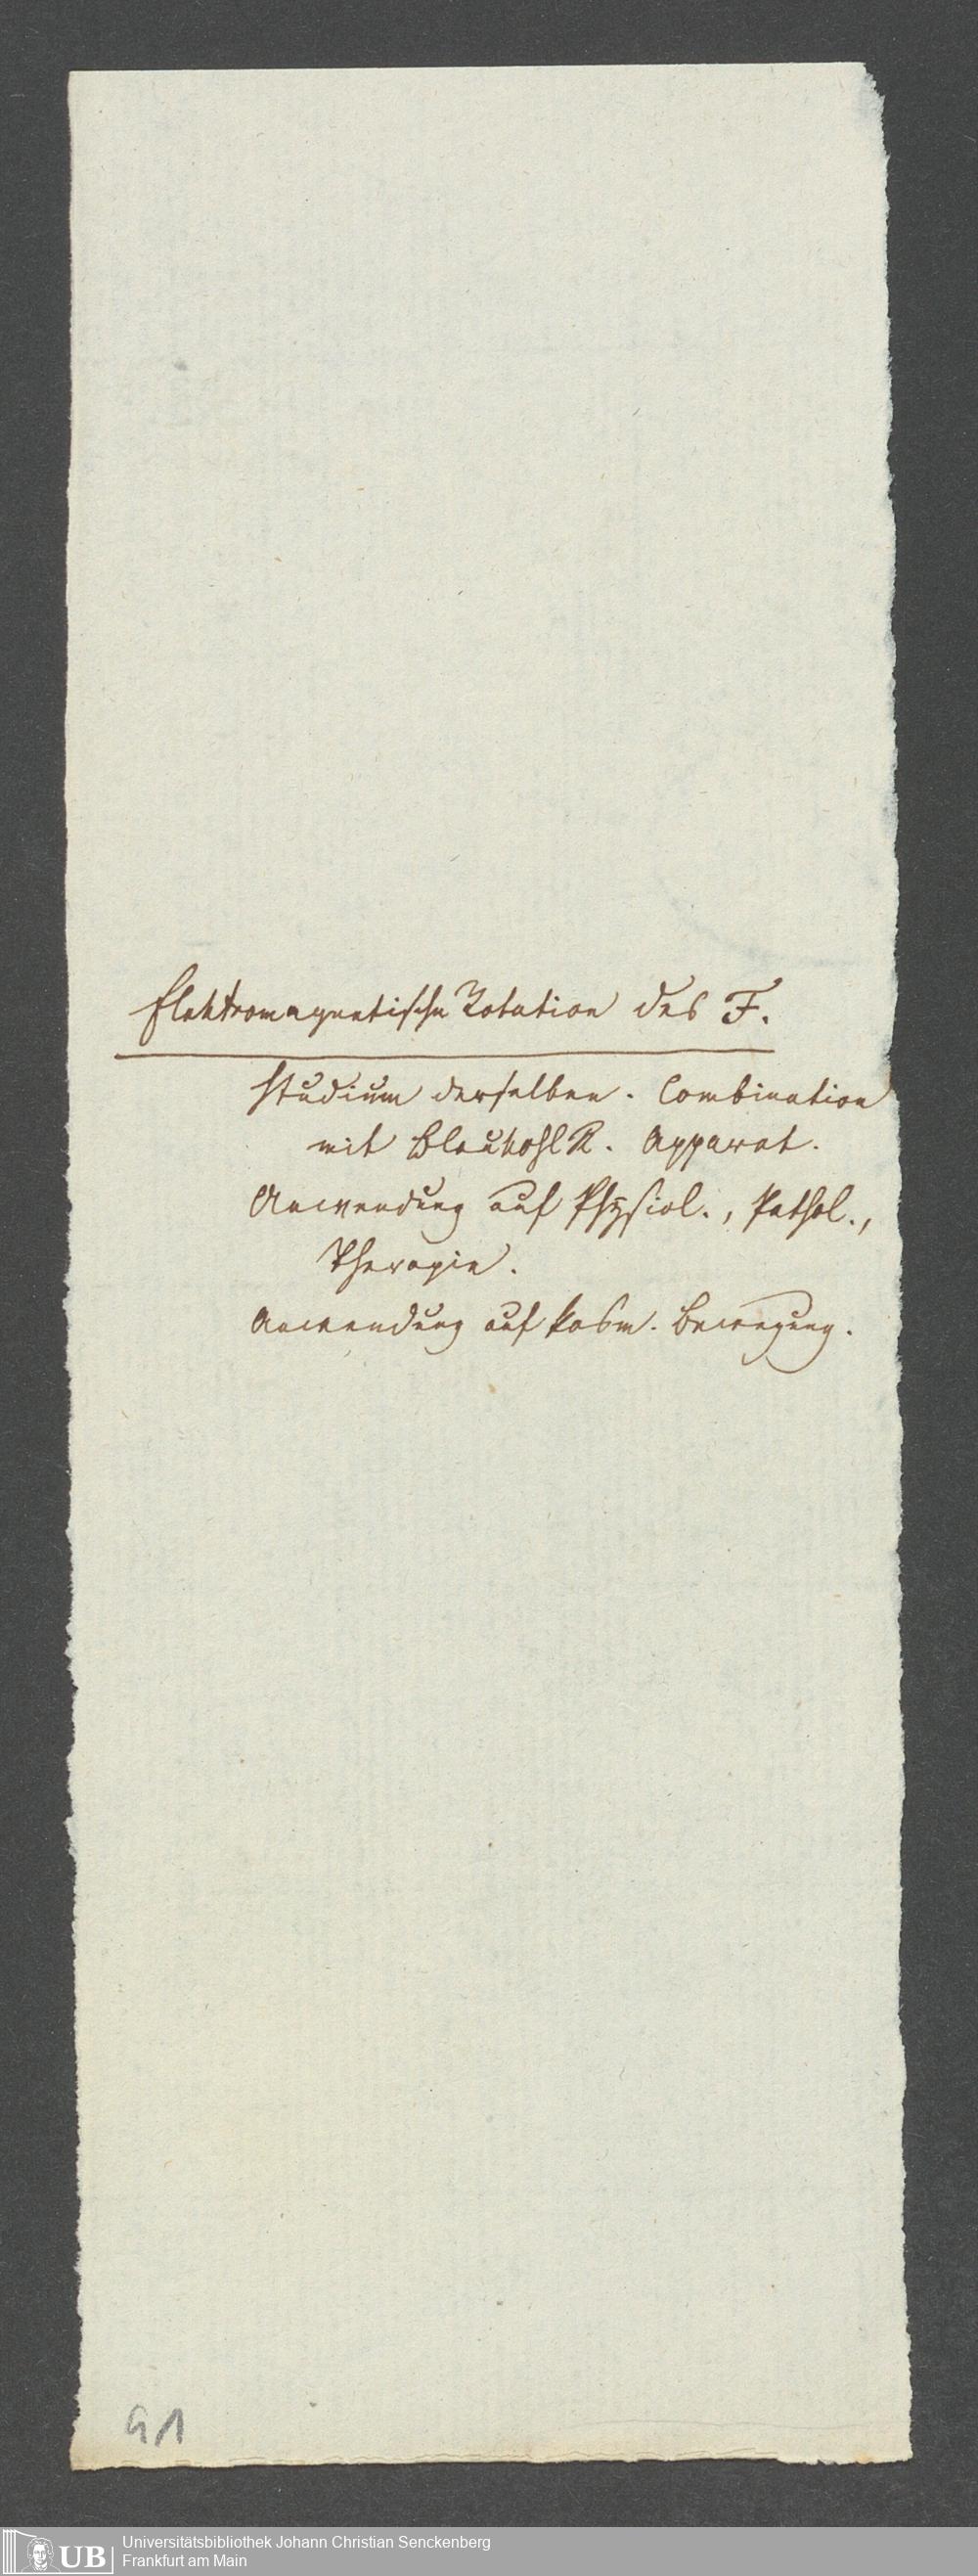 Elektromagnetische Rotation des F.
Studium derselben. Combination
mit Blaukohl R. Apparat.
Anwendung auf Physiol., Pathol.,
Therapie.
Anwendung auf kosm. Bewegung.
91
UB
Universitätsbibliothek Johann Christian Senckenberg
Frankfurt am Main